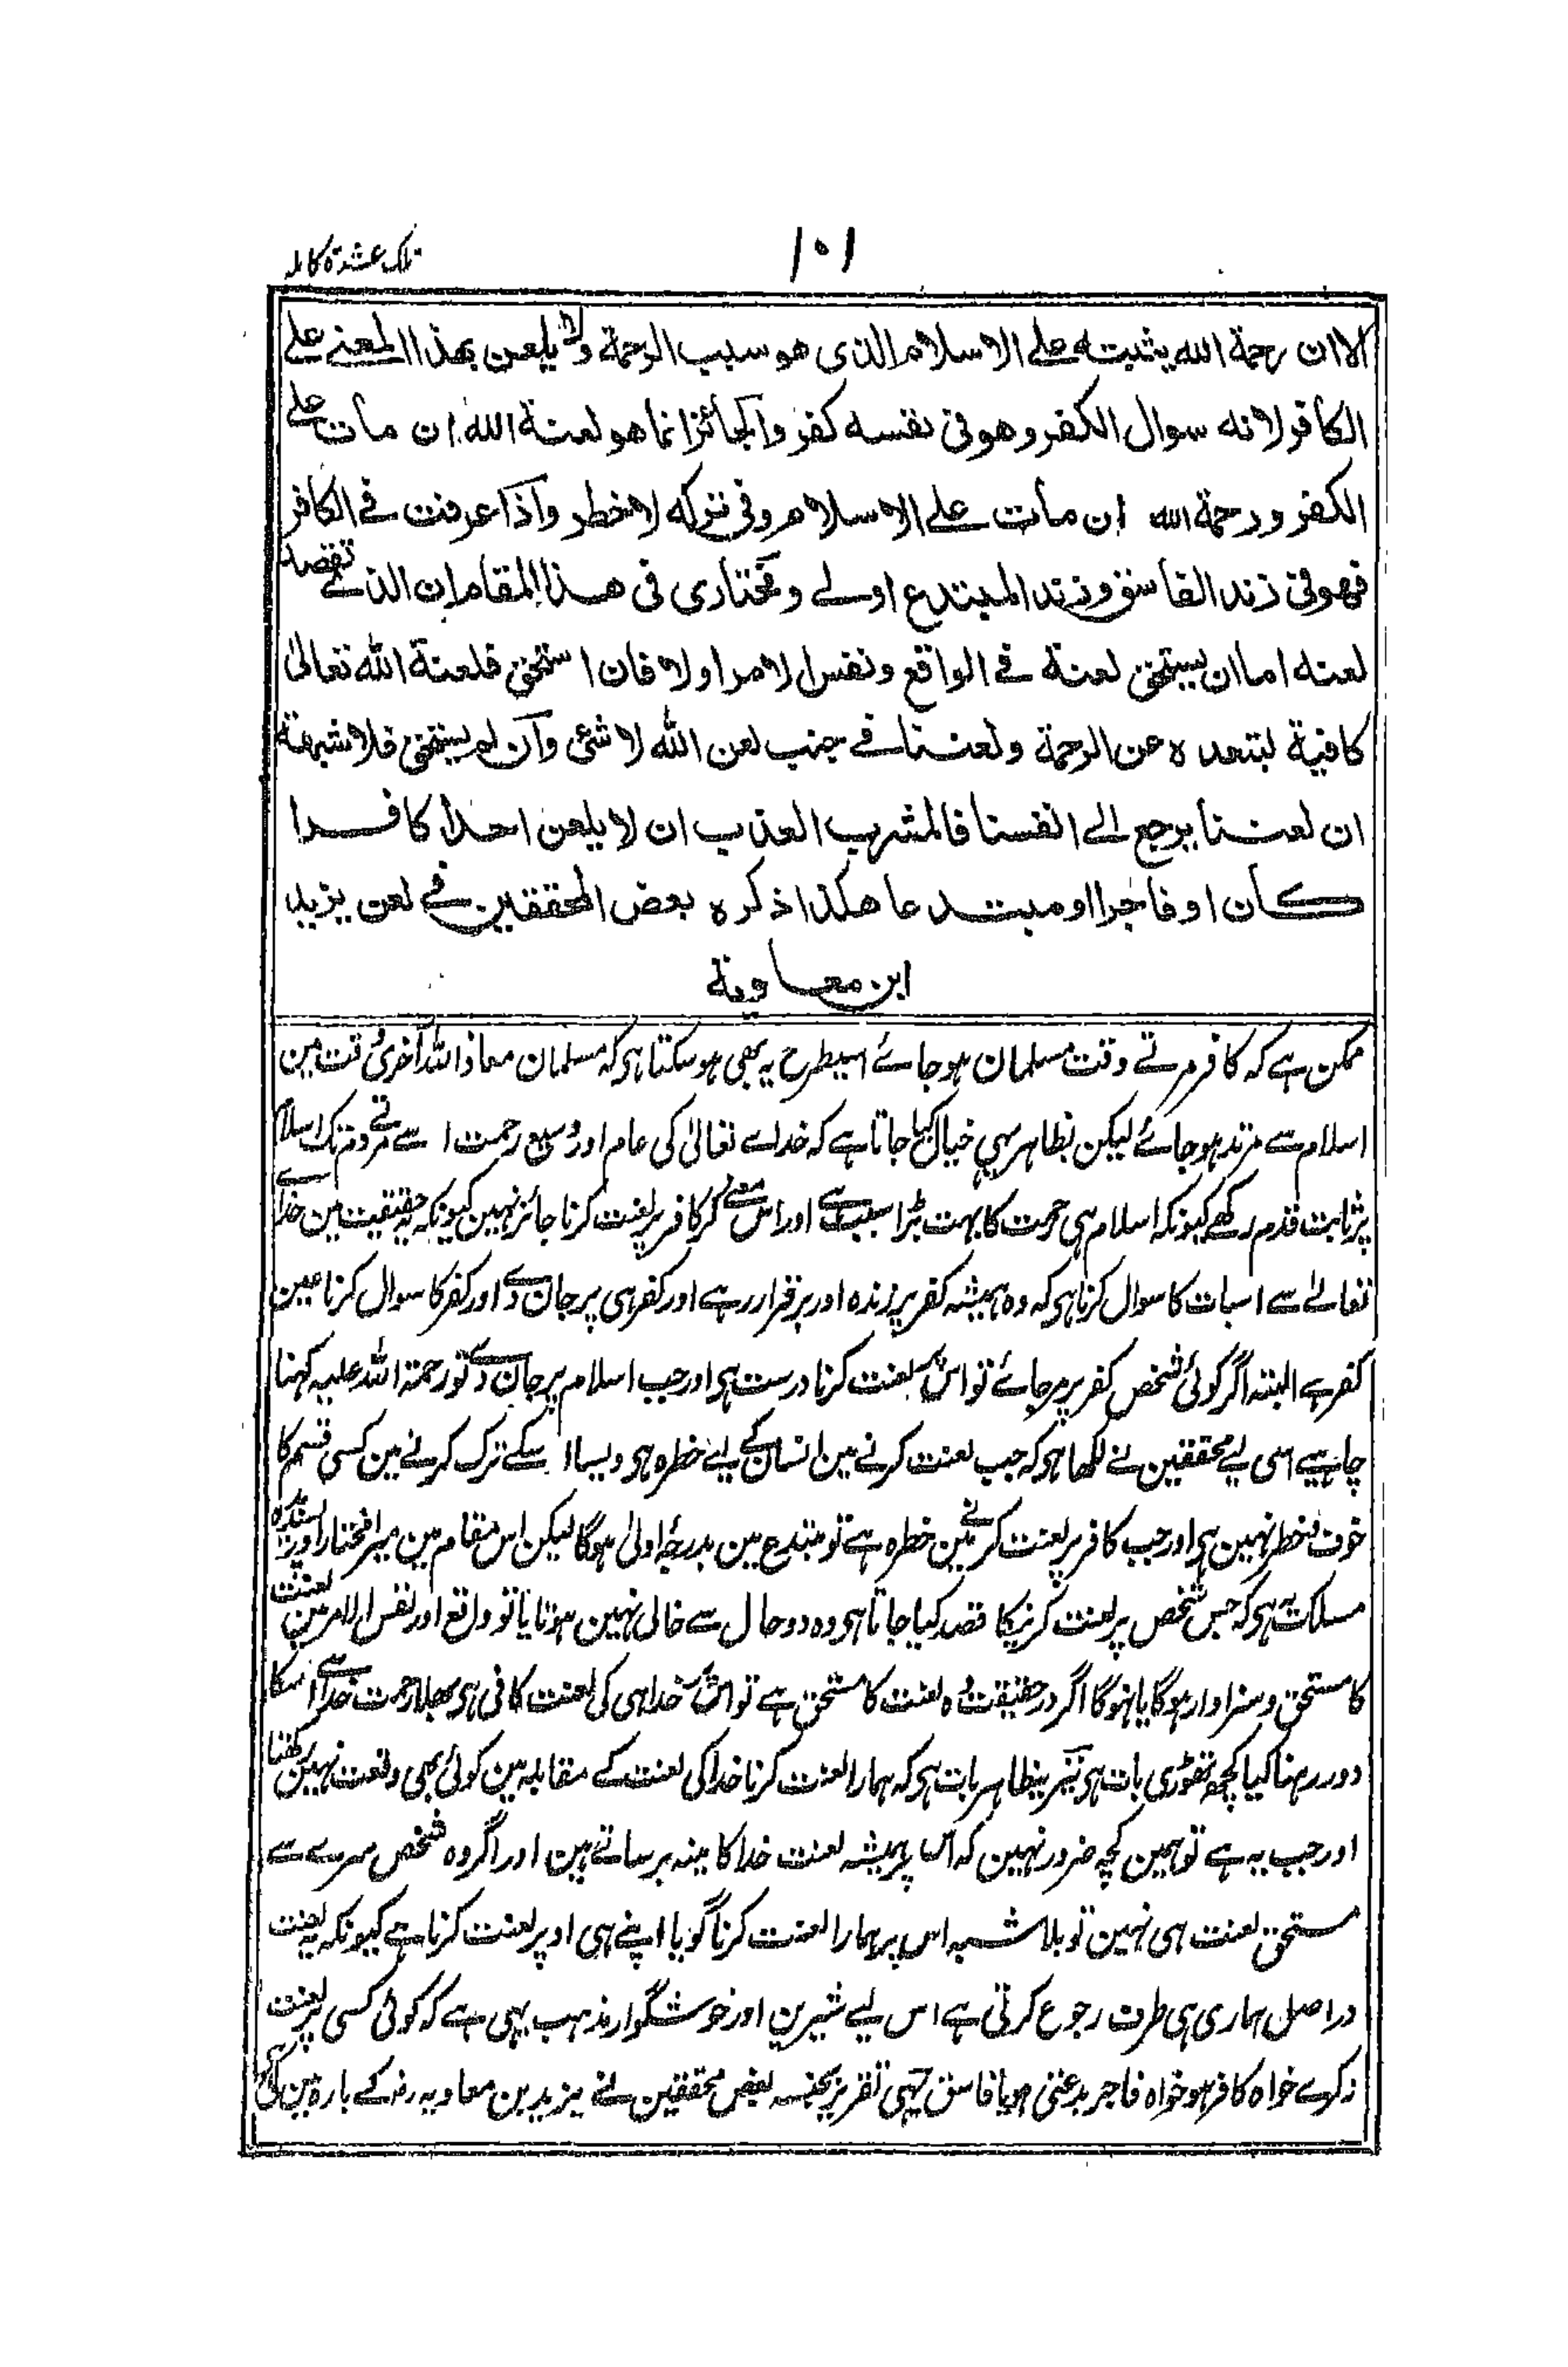 تلک عشرة کاملہ
۱۰۱
الا ان رحمة الله یثبته علی الاسلام الذی هو سبب الرحمة ولا یلعن بهذا المعنے علے
الکافر لانه سوال الکفر وهو فی نفسه کفر والجائز انما هو لعنة الله ان مات علے
الکفر ورحمة الله ان مات علے الاسلام وفی ترکه لاخطر واذا عرفت فے الکافر
فهو فی زند الفاسق وزند المبتدع اولے ومختاری فی هذا المقام ان الذے تقصد
لعنه اما ان یستحق لعنة فے الواقع ونفس الامر اولا فان استحق فلعنة الله تعالیٰ
کافیة لبتعده عن الرحمة ولعننا فے جنب لعن الله لا شئی وان لم یستحق فلا شبهة
ان لعننا یرجع الے انفسنا فالمشرب العذب ان لا یلعن احدا کافرا
کان او فاجرا او مبتدعا هکذا ذکره بعض المحققین فے لعن یزید
ابن معاویة
ممکن ہے کہ کافر مرتے وقت مسلمان ہو جائے اسیطرح یہ بھی ہو سکتا ہی کہ مسلمان معاذ اللہ آخری وقت مین
اسلام سے مرتد ہو جائے لیکن بظاہر یہی خیال کیا جاتا ہے کہ خداے تعالیٰ کی عام اور وسیع رحمت اسے مرتے دم تک اسلام
پر ثابت قدم رکھے کیونکہ اسلام ہی رحمت کا بہت بڑا سبب ہے اور اس معنے کر کافر پر لعنت کرنا جائز نہین کیونکہ یہ حقیقت مین خداے
تعالےٰ سے اسبات کا سوال کرنا ہی کہ وہ ہمیشہ کفر پر زندہ اور برقرار رہے اور کفر ہی پر جان دے اور کفر کا سوال کرنا عین
کفر ہے البتہ اگر کوئی شخص کفر پر مرجائے تو اس پر لعنت کرنا درست ہی اور جب اسلام پر جان دے تو رحمۃ اللہ علیہ کہنا
چاہیے اسی لیے محققین نے لکھا ہی کہ جب لعنت کرنے مین انسان کے لیے خطرہ ہی ویسا اسکے ترک کرنے مین کسی قسم کا
خوف وخطر نہین ہی اور جب کافر پر لعنت کرنے مین خطرہ ہے تو مبتدع مین بدرجۂ اولیٰ ہوگا لیکن اس مقام مین میرا مختار اور پسندیدہ
مسلک یہ ہی کہ جس شخص پر لعنت کرنیکا قصد کیا جاتا ہی وہ دو حال سے خالی نہین ہوتا یا تو واقع اور نفس الامر مین لعنت
کا مستحق وسزاوار ہوگا یا نہوگا اگر درحقیقت وہ لعنت کا مستحق ہے تو اس پر خدا ہی کی لعنت کافی ہی بھلا رحمت خدا سے اسکا
دور رہنا کیا کچھ تھوڑی بات ہی نیز یہ ظاہر بات ہی کہ ہمارا لعنت کرنا خدا کی لعنت کے مقابلہ مین کوئی بھی وقعت نہین رکھتا
اور جب یہ ہے تو ہمین کچھ ضرور نہین کہ اس پر ہمیشہ لعنت خدا کا مینہ برساتے ہین اور اگر وہ شخص سرے سے
مستحق لعنت ہی نہین تو بلاشبہ اس پر ہمارا لعنت کرنا گویا اپنے ہی اوپر لعنت کرنا ہے کیونکہ یہ لعنت
دراصل ہماری ہی طرف رجوع کرتی ہے اس لیے شیرین اور خوشگوار مذہب یہی ہے کہ کوئی کسی پر لعنت
نکرے خواہ کافر ہو خواہ فاجر بدعتی ہو یا فاسق یہی تقریر بجنسہ بعض محققین نے یزید بن معاویہ رضہ کے بارہ مین